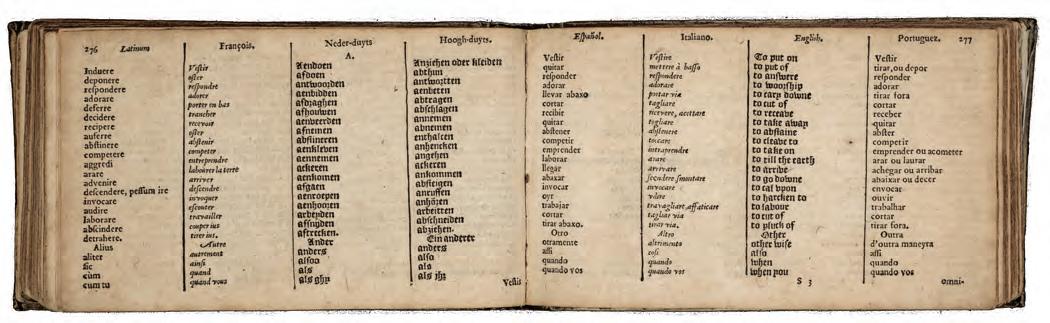 276 Latinum
Induere
deponere
respondere
adorare
deferre
decidere
recipere
auferre
abstinere
competere
aggredi
arare
advenire
descendere, pessum ire
invocare
audire
laborare
abscindere
detrahere.
Alius
aliter
sic
cùm
cum tu
François.
Vestir
oster
respondre
adorer
porter en bas
trancher
recevoir
oster
abstenir
competer
entreprendre
labourer la terre
arriver
descendre
invoquer
escouter
travailler
couper ius
tirer ius.
Autre
autrement
ainsi
quand
quand vous
Neder-duyts
A.
Aendoen
afdoen
antwoorden
aenbidden
afdraghen
afhouwen
aenveerden
afnemen
abstineren
aenkleven
aennemen
ackeren
aenkomen
afgaen
aenroepen
aenhooren
arbeyden
afsnyden
aftrecken.
Ander
anders
alsoo
als
als ghy
Hoogh-duyts.
Anziehen oder kleiden
abthun
antwortten
aenbeten
abtragen
abschlagen
annemen
abnemen
enthalten
anhencken
angehen
ackeren
ankommen
absteigen
anruffen
anhören
arbeitten
abschneiden
abziehen.
Ein anderer
anders
also
als
als ihr
Vestis
Español.
Vestir
quitar
responder
adorar
llevar abaxo
cortar
recibir
quitar
abstener
competir
emprender
laborar
llegar
abaxar
invocar
oyr
trabajar
cortar
tirar abaxo.
Otro
otramente
assi
quando
quando vos
Italiano.
Vestire
mettere à basso
respondere
adorare
portar via
tagliare
ricevere, accettare
togliare
abstenere
toccare
intraprendre
arare
arrivare
scendere smontare
invocare
udire
travagliare, affaticare
tagliar via
tirar via.
Altro
altrimento
cosi
quando
quando vos
English.
To put on
to put of
to answere
to woorship
to cary downe
to cut of
to receave
to take away
to abstaine
to cleave to
to take on
to till the earth
to arrive
to go downe
to cal upon
to harcken to
to labour
to cut of
to pluck of
Other
other wise
also
when
when you
S 3
Portuguez. 277
Vestir
tirar, ou depor
responder
adorar
tirar fora
cortar
receber
quitar
abster
competir
emprender ou acometer
arar ou laurar
achegar ou arribar
abaixar ou decer
envocar
ouvir
trabalhar
cortar
tirar fora.
Outra
d'outra maneyra
assi
quando
quando vos
omni-